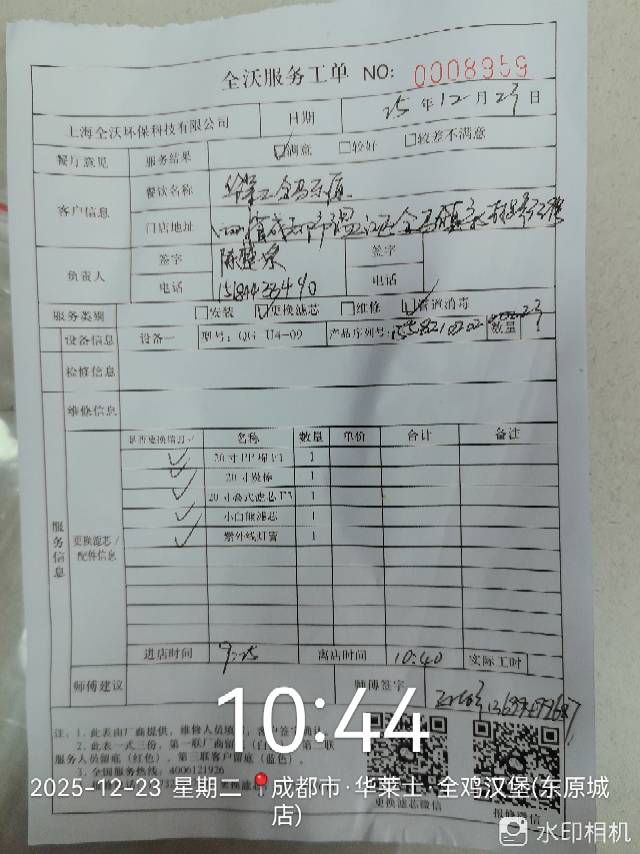 全沃服务工单 NO: 0008959
上海全沃环保科技有限公司 日期 25 年 12 月 23 日
餐厅意见 服务结果 ☑满意 □较好 □较差不满意
客户信息 餐饮名称
门店地址
负责人 签字 签字
电话 电话
服务类别 □安装 ☑更换滤芯 □维修 ☑管道消毒
设备信息 设备一 型号: QG-U4-09 产品序列号: 数量
检修信息
维修信息
服务信息 更换滤芯/配件信息
是否更换请打✓ 名称 数量 单价 合计 备注
✓ 20寸PP 1
✓ 20寸炭棒 1
✓ 20寸 滤芯 1
✓ 滤芯 1
✓ 紫外线灯管 1
进店时间 9:25 离店时间 10:40 实际工时
师傅建议 师傅签字
注：1、此表由厂商提供，维修人员填
2、此表一式三份，第一联厂商留 第二联
服务人员留底（红色）。第三联客户留底（蓝色）。
3、全国服务热线：4006121926
更换滤芯微信
报修微信
10:44
2025-12-23 星期二 成都市·华莱士·全鸡汉堡(东原城
店)
水印相机